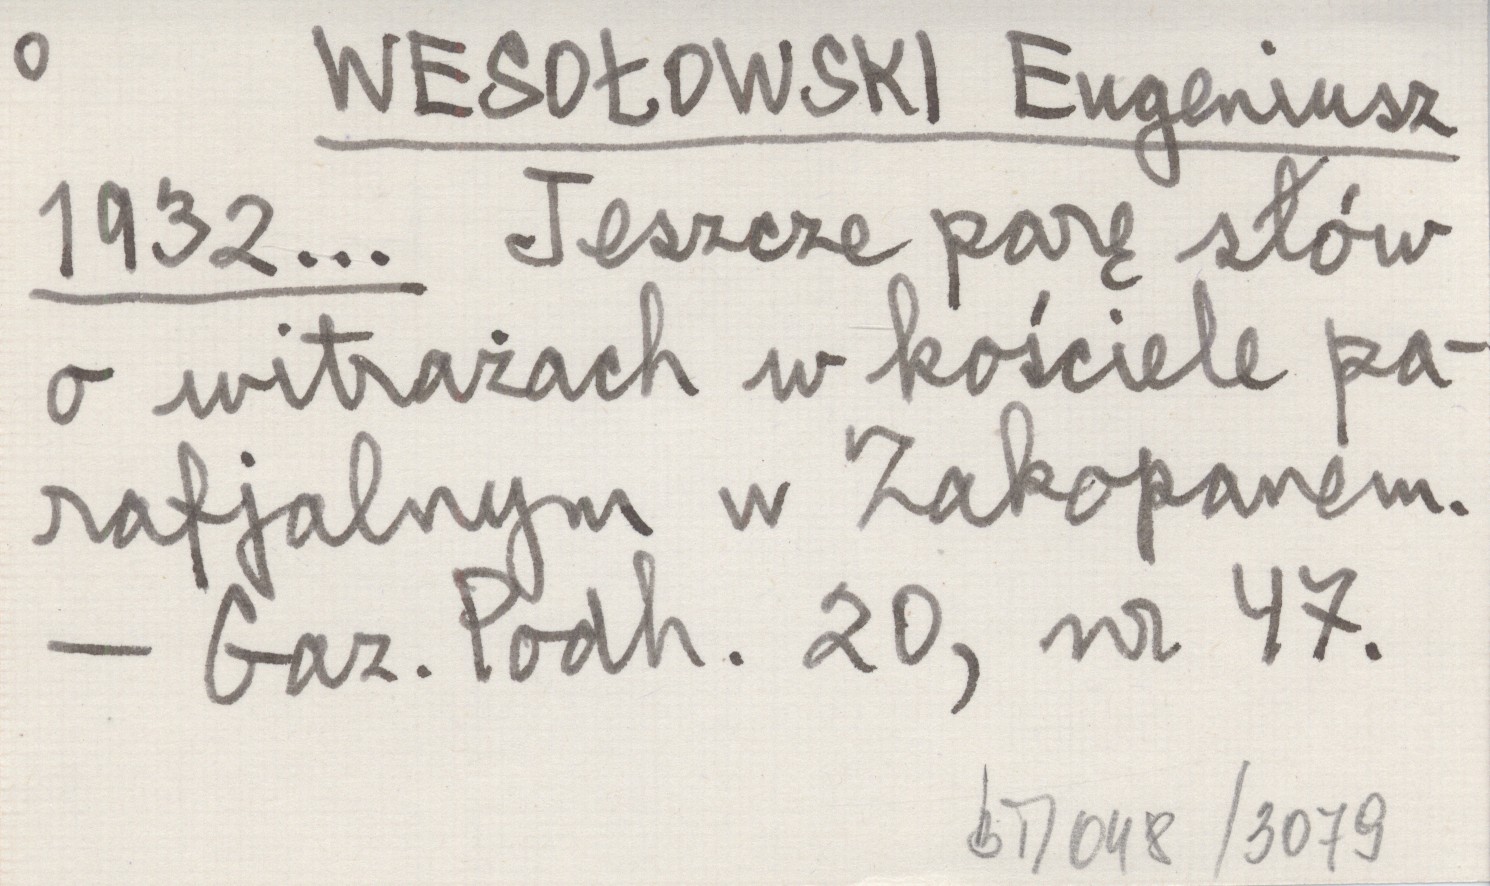 o WESOŁOWSKI Eugeniusz
1932... Jeszcze parę słów
o witrażach w kościele pa-
rafjalnym w Zakopanem.
— Gaz. Podh. 20, nr 47.
bT/048/3079